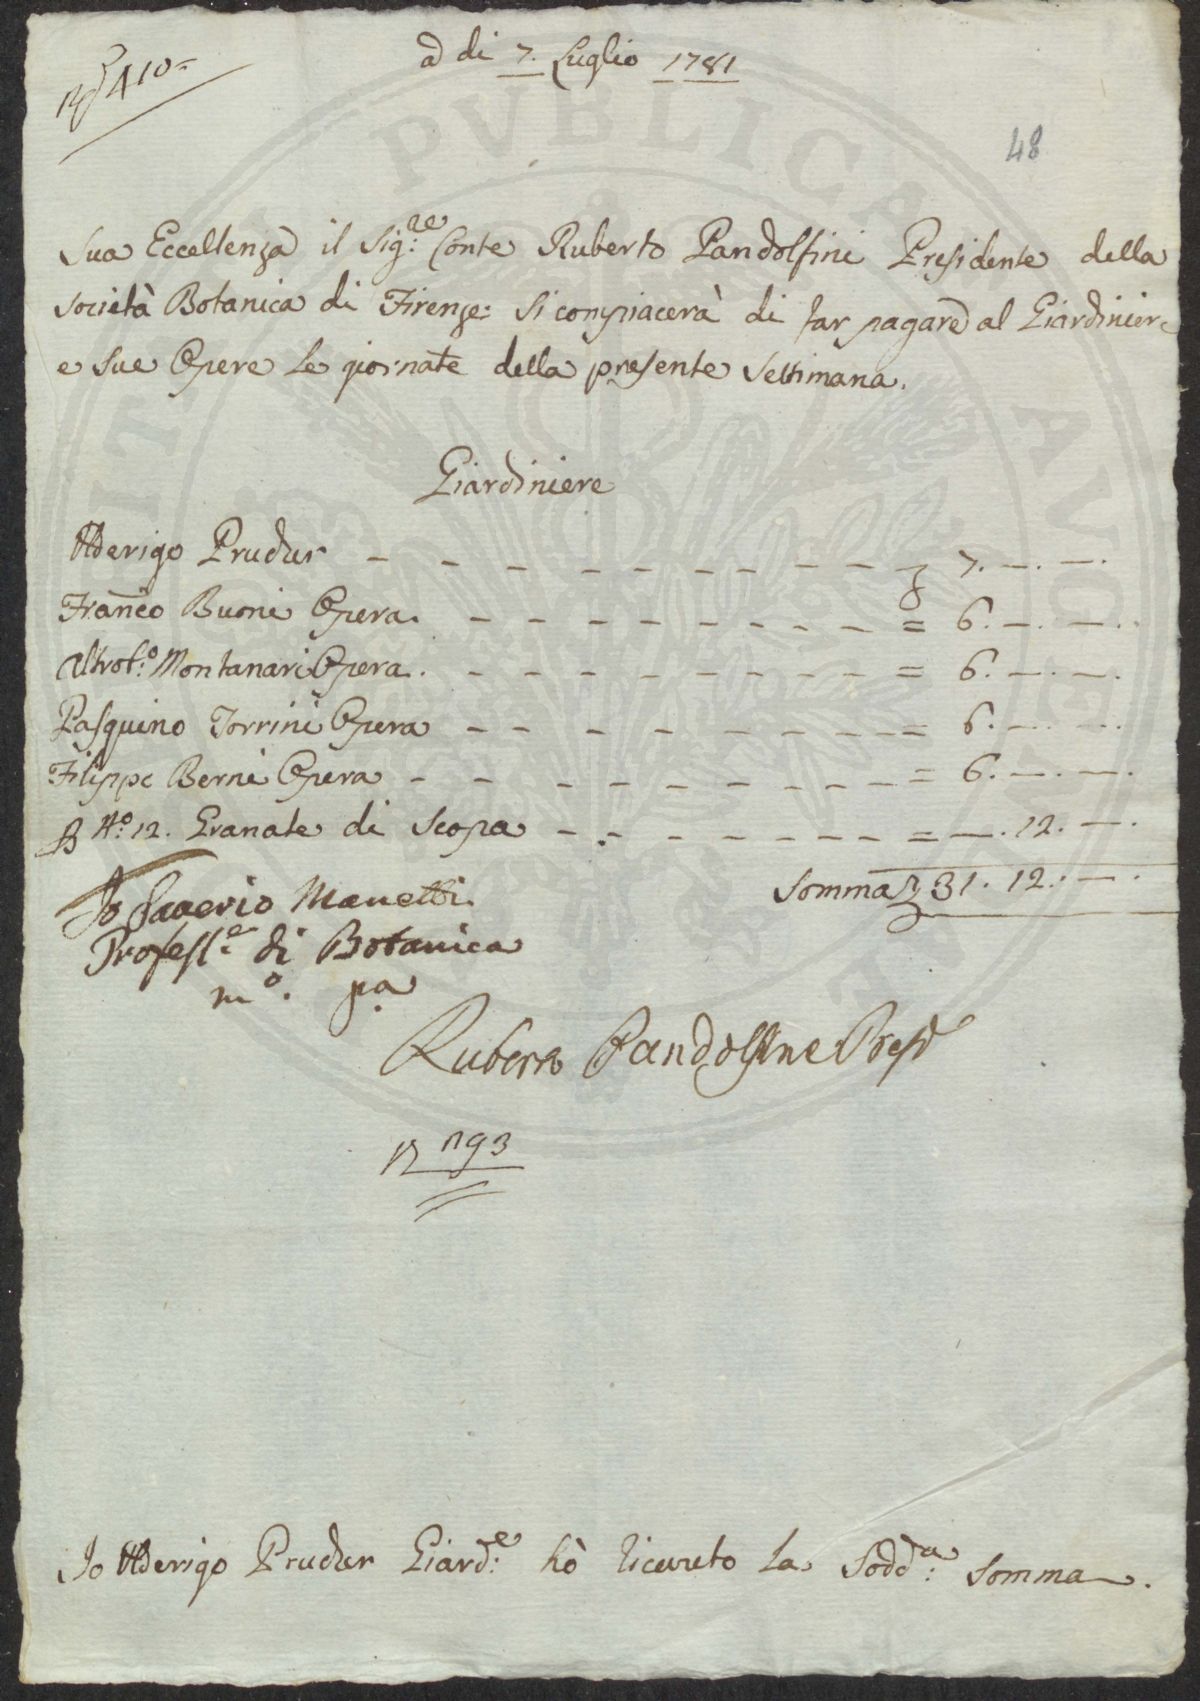 a dì 7. Luglio 1781
410
48
Sua Eccellenza il Sig:re Conte Ruberto Pandolfini Presidente della
Società Botanica di Firenze: Si compiacerà di far pagare al Giardiniere
e Sue Opere le giornate della presente Settimana.
Giardiniere
Prucker - - - - - - - - - 7. — . —
Franco Buoni Opera. - - - - - - - - = 6. — . —
Montanari Opera. - - - - - - - - = 6. — . —
Pasquino Torrini Opera - - - - - - - = 6. — . —
Filippo Berni Opera - - - - - - - - = 6. — . —
N:o 12. Granate di Scopa - - - - - - - = — . 12. —
Somma 31. 12. —
Io Saverio Manetti
Profess.e di Botanica
m:o pa
Ruberto Pandolfini Presid
Io Prucker Giard:e hò ricevuto la Sodd:a Somma.
PVBLICAE